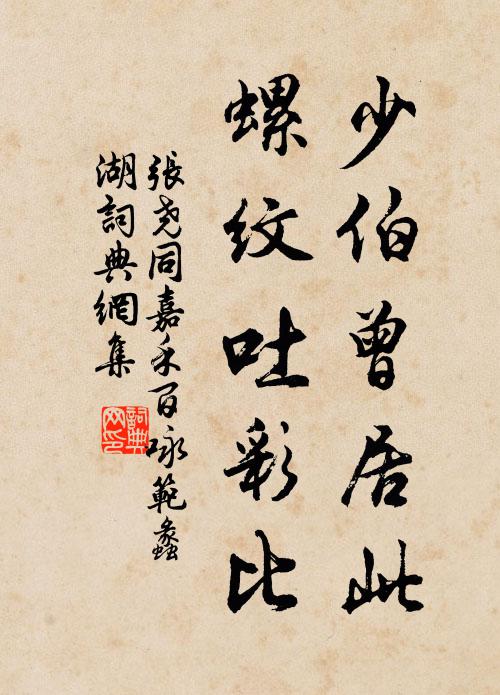 少伯曾居此
螺紋吐彩比
張堯同嘉禾百咏範蠡
湖詞典網集
詞典
网印